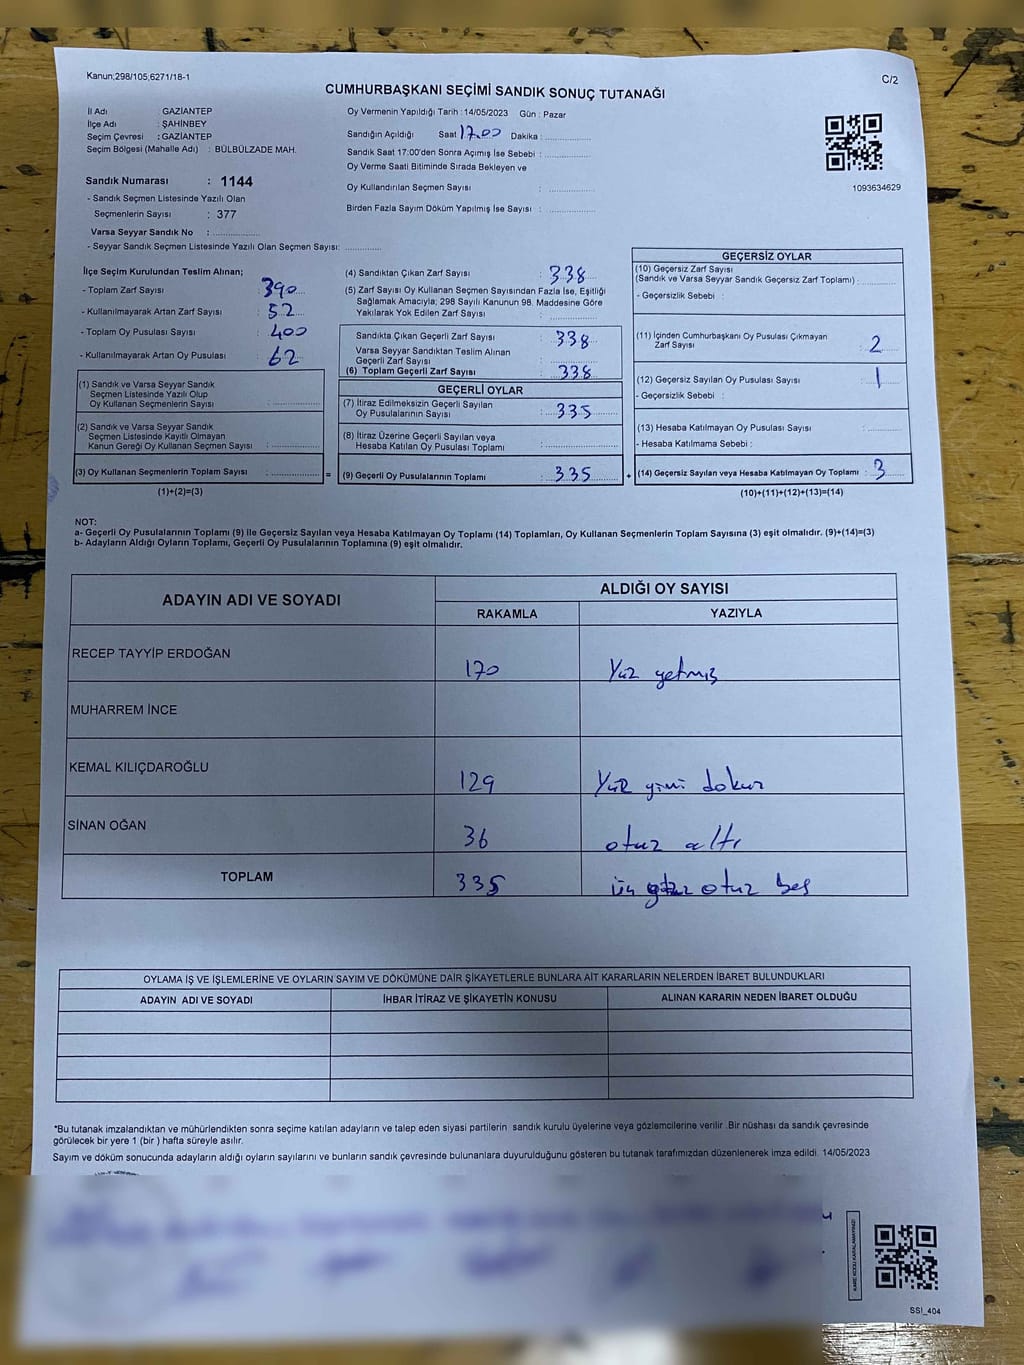 Kanun;298/105,6271/18-1
C/2
CUMHURBAŞKANI SEÇİMİ SANDIK SONUÇ TUTANAĞI
İl Adı : GAZİANTEP
İlçe Adı : ŞAHİNBEY
Seçim Çevresi : GAZİANTEP
Seçim Bölgesi (Mahalle Adı) : BÜLBÜLZADE MAH.
Sandık Numarası : 1144
- Sandık Seçmen Listesinde Yazılı Olan
Seçmenlerin Sayısı : 377
Varsa Seyyar Sandık No :
- Seyyar Sandık Seçmen Listesinde Yazılı Olan Seçmen Sayısı:
Oy Vermenin Yapıldığı Tarih : 14/05/2023 Gün : Pazar
Sandığın Açıldığı Saat 17.00 Dakika :
Sandık Saat 17:00'den Sonra Açımış İse Sebebi :
Oy Verme Saati Bitiminde Sırada Bekleyen ve
Oy Kullandırılan Seçmen Sayısı :
Birden Fazla Sayım Döküm Yapılmış İse Sayısı :
1093634629
İlçe Seçim Kurulundan Teslim Alınan;
- Toplam Zarf Sayısı : 390
- Kullanılmayarak Artan Zarf Sayısı : 52
- Toplam Oy Pusulası Sayısı : 400
- Kullanılmayarak Artan Oy Pusulası : 62
(1) Sandık ve Varsa Seyyar Sandık
Seçmen Listesinde Yazılı Olup
Oy Kullanan Seçmenlerin Sayısı :
(2) Sandık ve Varsa Seyyar Sandık
Seçmen Listesinde Kayıtlı Olmayan
Kanun Gereği Oy Kullanan Seçmen Sayısı :
(3) Oy Kullanan Seçmenlerin Toplam Sayısı : =
(1)+(2)=(3)
(4) Sandıktan Çıkan Zarf Sayısı : 338
(5) Zarf Sayısı Oy Kullanan Seçmen Sayısından Fazla İse, Eşitliği
Sağlamak Amacıyla; 298 Sayılı Kanunun 98. Maddesine Göre
Yakılarak Yok Edilen Zarf Sayısı :
Sandıkta Çıkan Geçerli Zarf Sayısı : 338
Varsa Seyyar Sandıktan Teslim Alınan
Geçerli Zarf Sayısı :
(6) Toplam Geçerli Zarf Sayısı : 338
GEÇERLİ OYLAR
(7) İtiraz Edilmeksizin Geçerli Sayılan
Oy Pusulalarının Sayısı : 335
(8) İtiraz Üzerine Geçerli Sayılan veya
Hesaba Katılan Oy Pusulası Toplamı :
(9) Geçerli Oy Pusulalarının Toplamı : 335 +
GEÇERSİZ OYLAR
(10) Geçersiz Zarf Sayısı
(Sandık ve Varsa Seyyar Sandık Geçersiz Zarf Toplamı) :
- Geçersizlik Sebebi :
(11) İçinden Cumhurbaşkanı Oy Pusulası Çıkmayan
Zarf Sayısı : 2
(12) Geçersiz Sayılan Oy Pusulası Sayısı : 1
- Geçersizlik Sebebi :
(13) Hesaba Katılmayan Oy Pusulası Sayısı :
- Hesaba Katılmama Sebebi :
(14) Geçersiz Sayılan veya Hesaba Katılmayan Oy Toplamı : 3
(10)+(11)+(12)+(13)=(14)
NOT:
a- Geçerli Oy Pusulalarının Toplamı (9) ile Geçersiz Sayılan veya Hesaba Katılmayan Oy Toplamı (14) Toplamları, Oy Kullanan Seçmenlerin Toplam Sayısına (3) eşit olmalıdır. (9)+(14)=(3)
b- Adayların Aldığı Oyların Toplamı, Geçerli Oy Pusulalarının Toplamına (9) eşit olmalıdır.
ADAYIN ADI VE SOYADI
ALDIĞI OY SAYISI
RAKAMLA YAZIYLA
RECEP TAYYİP ERDOĞAN 170 Yüz yetmiş
MUHARREM İNCE
KEMAL KILIÇDAROĞLU 129 Yüz yirmi dokuz
SİNAN OĞAN 36 otuz altı
TOPLAM 335 üç yüz otuz beş
OYLAMA İŞ VE İŞLEMLERİNE VE OYLARIN SAYIM VE DÖKÜMÜNE DAİR ŞİKAYETLERLE BUNLARA AİT KARARLARIN NELERDEN İBARET BULUNDUKLARI
ADAYIN ADI VE SOYADI İHBAR İTİRAZ VE ŞİKAYETİN KONUSU ALINAN KARARIN NEDEN İBARET OLDUĞU
*Bu tutanak imzalandıktan ve mühürlendikten sonra seçime katılan adayların ve talep eden siyasi partilerin sandık kurulu üyelerine veya gözlemcilerine verilir .Bir nüshası da sandık çevresinde
görülecek bir yere 1 (bir ) hafta süreyle asılır.
Sayım ve döküm sonucunda adayların aldığı oyların sayılarını ve bunların sandık çevresinde bulunanlara duyurulduğunu gösteren bu tutanak tarafımızdan düzenlenerek imza edildi. 14/05/2023
KARE KODU KARALAMAYINIZ!
SSI_404